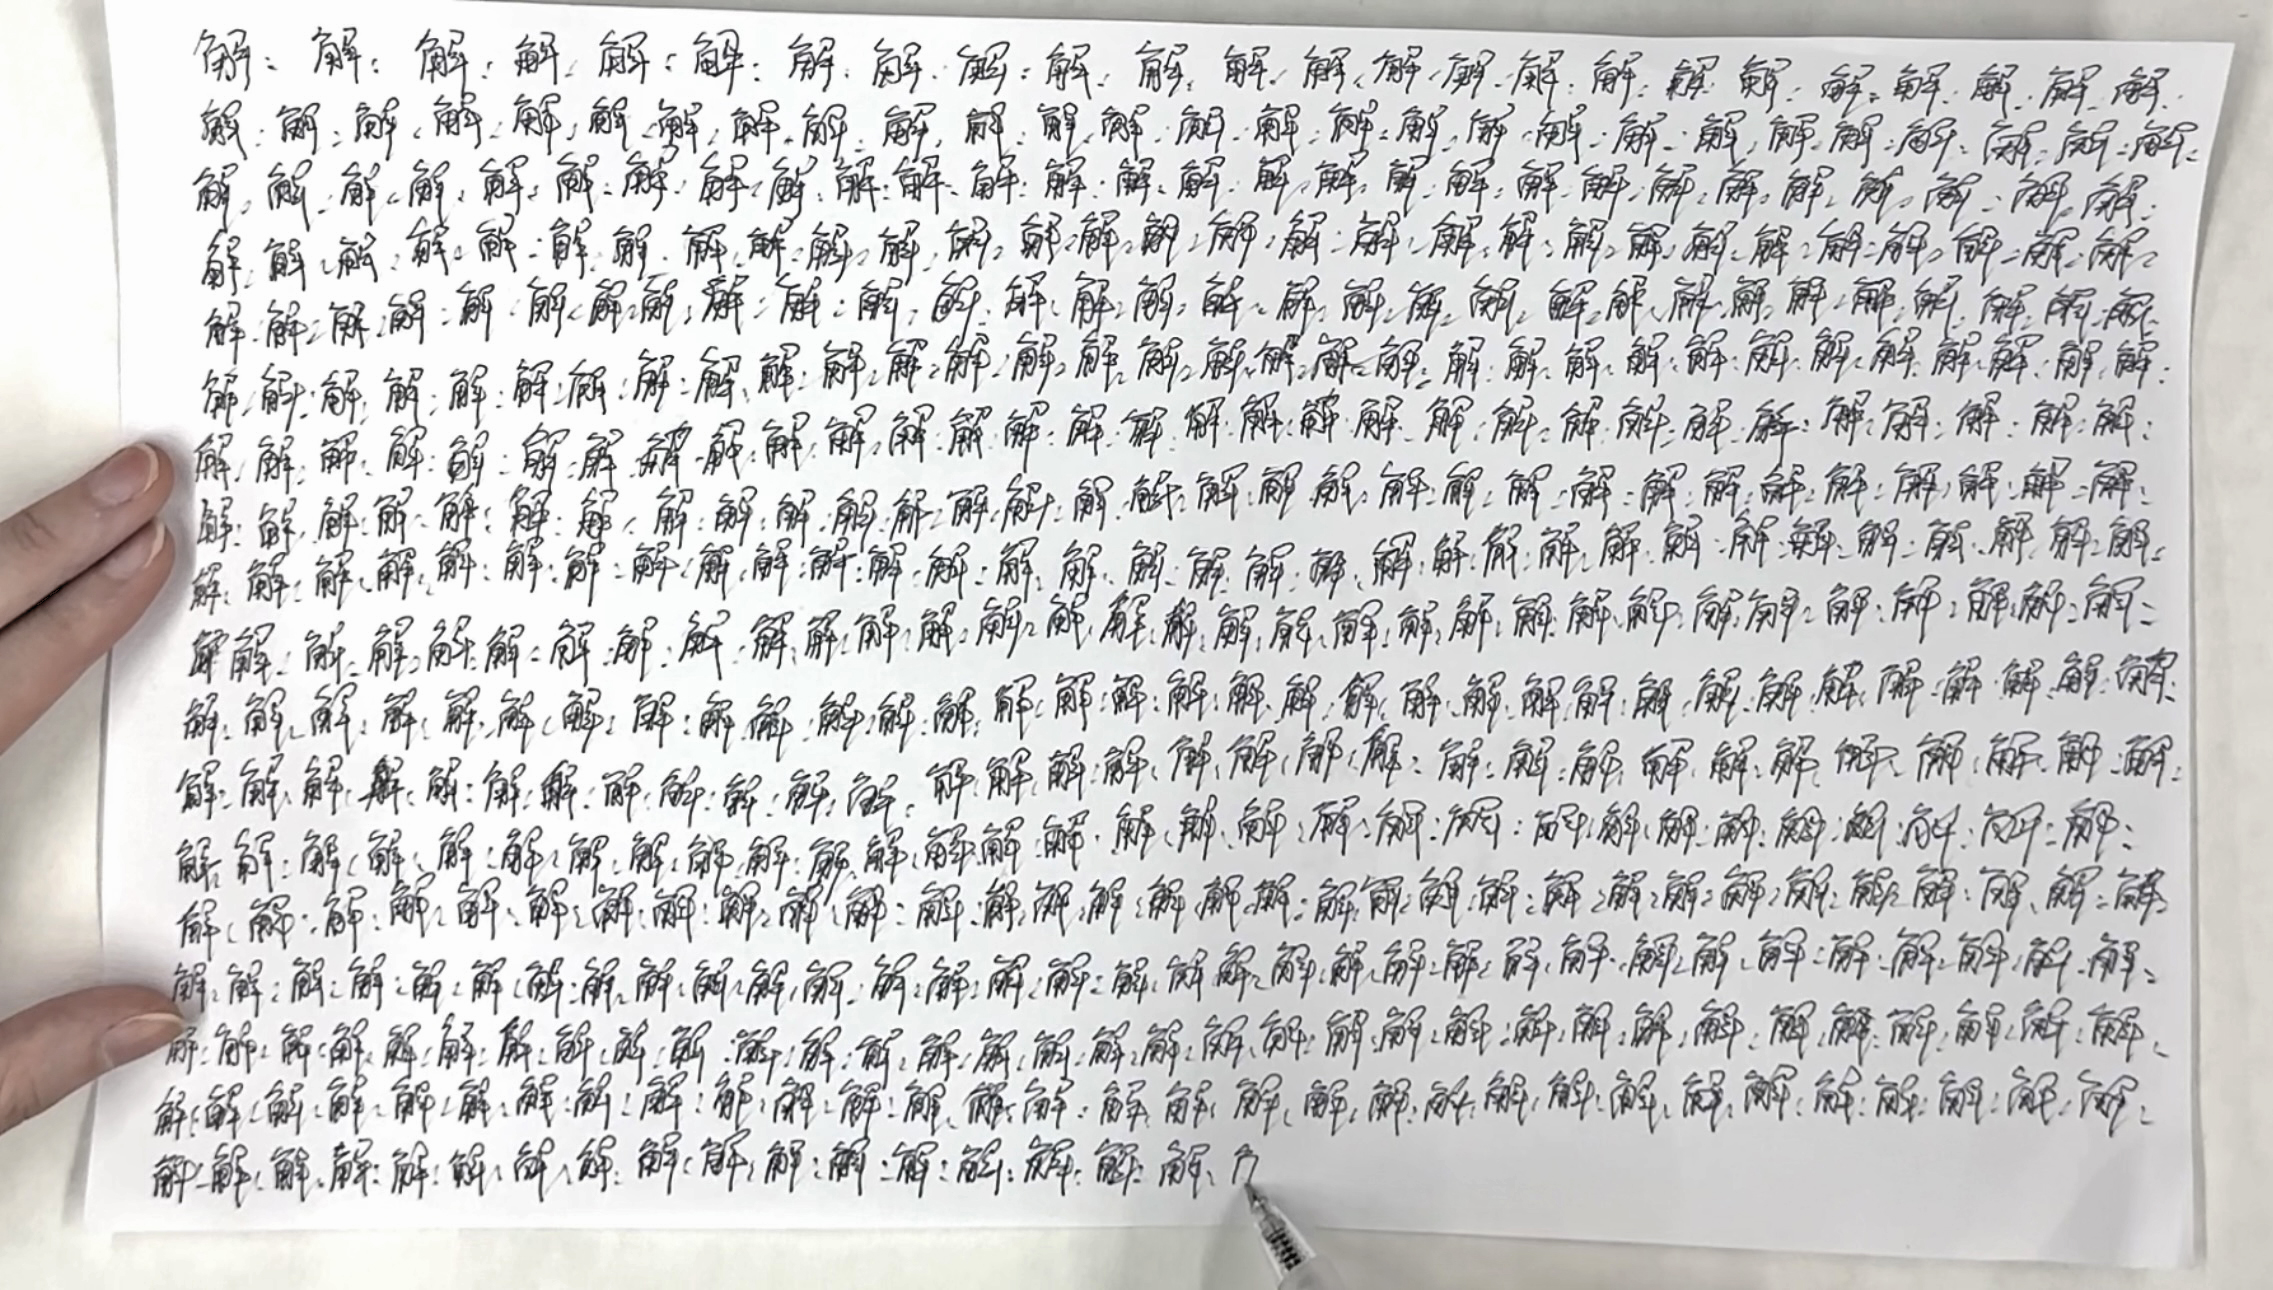 解：解：解：解：解：解：解：解：解：解：解：解：解：解：解：解：解：解：解：解：解：解：解：解：
解：解：解：解：解：解：解：解：解：解：解：解：解：解：解：解：解：解：解：解：解：解：解：解：解：解：解：
解：解：解：解：解：解：解：解：解：解：解：解：解：解：解：解：解：解：解：解：解：解：解：解：解：解：解：解：
解：解：解：解：解：解：解：解：解：解：解：解：解：解：解：解：解：解：解：解：解：解：解：解：解：解：解：解：解：
解：解：解：解：解：解：解：解：解：解：解：解：解：解：解：解：解：解：解：解：解：解：解：解：解：解：解：解：解：解：
解：解：解：解：解：解：解：解：解：解：解：解：解：解：解：解：解：解：解：解：解：解：解：解：解：解：解：解：解：解：解：解：
解：解：解：解：解：解：解：解：解：解：解：解：解：解：解：解：解：解：解：解：解：解：解：解：解：解：解：解：解：解：解：
解：解：解：解：解：解：解：解：解：解：解：解：解：解：解：解：解：解：解：解：解：解：解：解：解：解：解：解：解：解：解：
解：解：解：解：解：解：解：解：解：解：解：解：解：解：解：解：解：解：解：解：解：解：解：解：解：解：解：解：解：解：解：解：
解解：解：解：解：解：解：解：解：解：解：解：解：解：解：解：解：解：解：解：解：解：解：解：解：解：解：解：解：解：解：解：
解：解：解：解：解：解：解：解：解：解：解：解：解：解：解：解：解：解：解：解：解：解：解：解：解：解：解：解：解：解：解：解：解：
解：解：解：解：解：解：解：解：解：解：解：解：解：解：解：解：解：解：解：解：解：解：解：解：解：解：解：解：解：解：解：
解：解：解：解：解：解：解：解：解：解：解：解：解：解：解：解：解：解：解：解：解：解：解：解：解：解：解：解：解：解：
解：解：解：解：解：解：解：解：解：解：解：解：解：解：解：解：解：解：解：解：解：解：解：解：解：解：解：解：解：解：解：解：
解：解：解：解：解：解：解：解：解：解：解：解：解：解：解：解：解：解：解：解：解：解：解：解：解：解：解：解：解：解：解：解：解：
解：解：解：解：解：解：解：解：解：解：解：解：解：解：解：解：解：解：解：解：解：解：解：解：解：解：解：解：解：解：解：解：解：
解：解：解：解：解：解：解：解：解：解：解：解：解：解：解：解：解：解：解：解：解：解：解：解：解：解：解：解：解：解：解：
解：解：解：解：解：解：解：解：解：解：解：解：解：解：解：解：解：